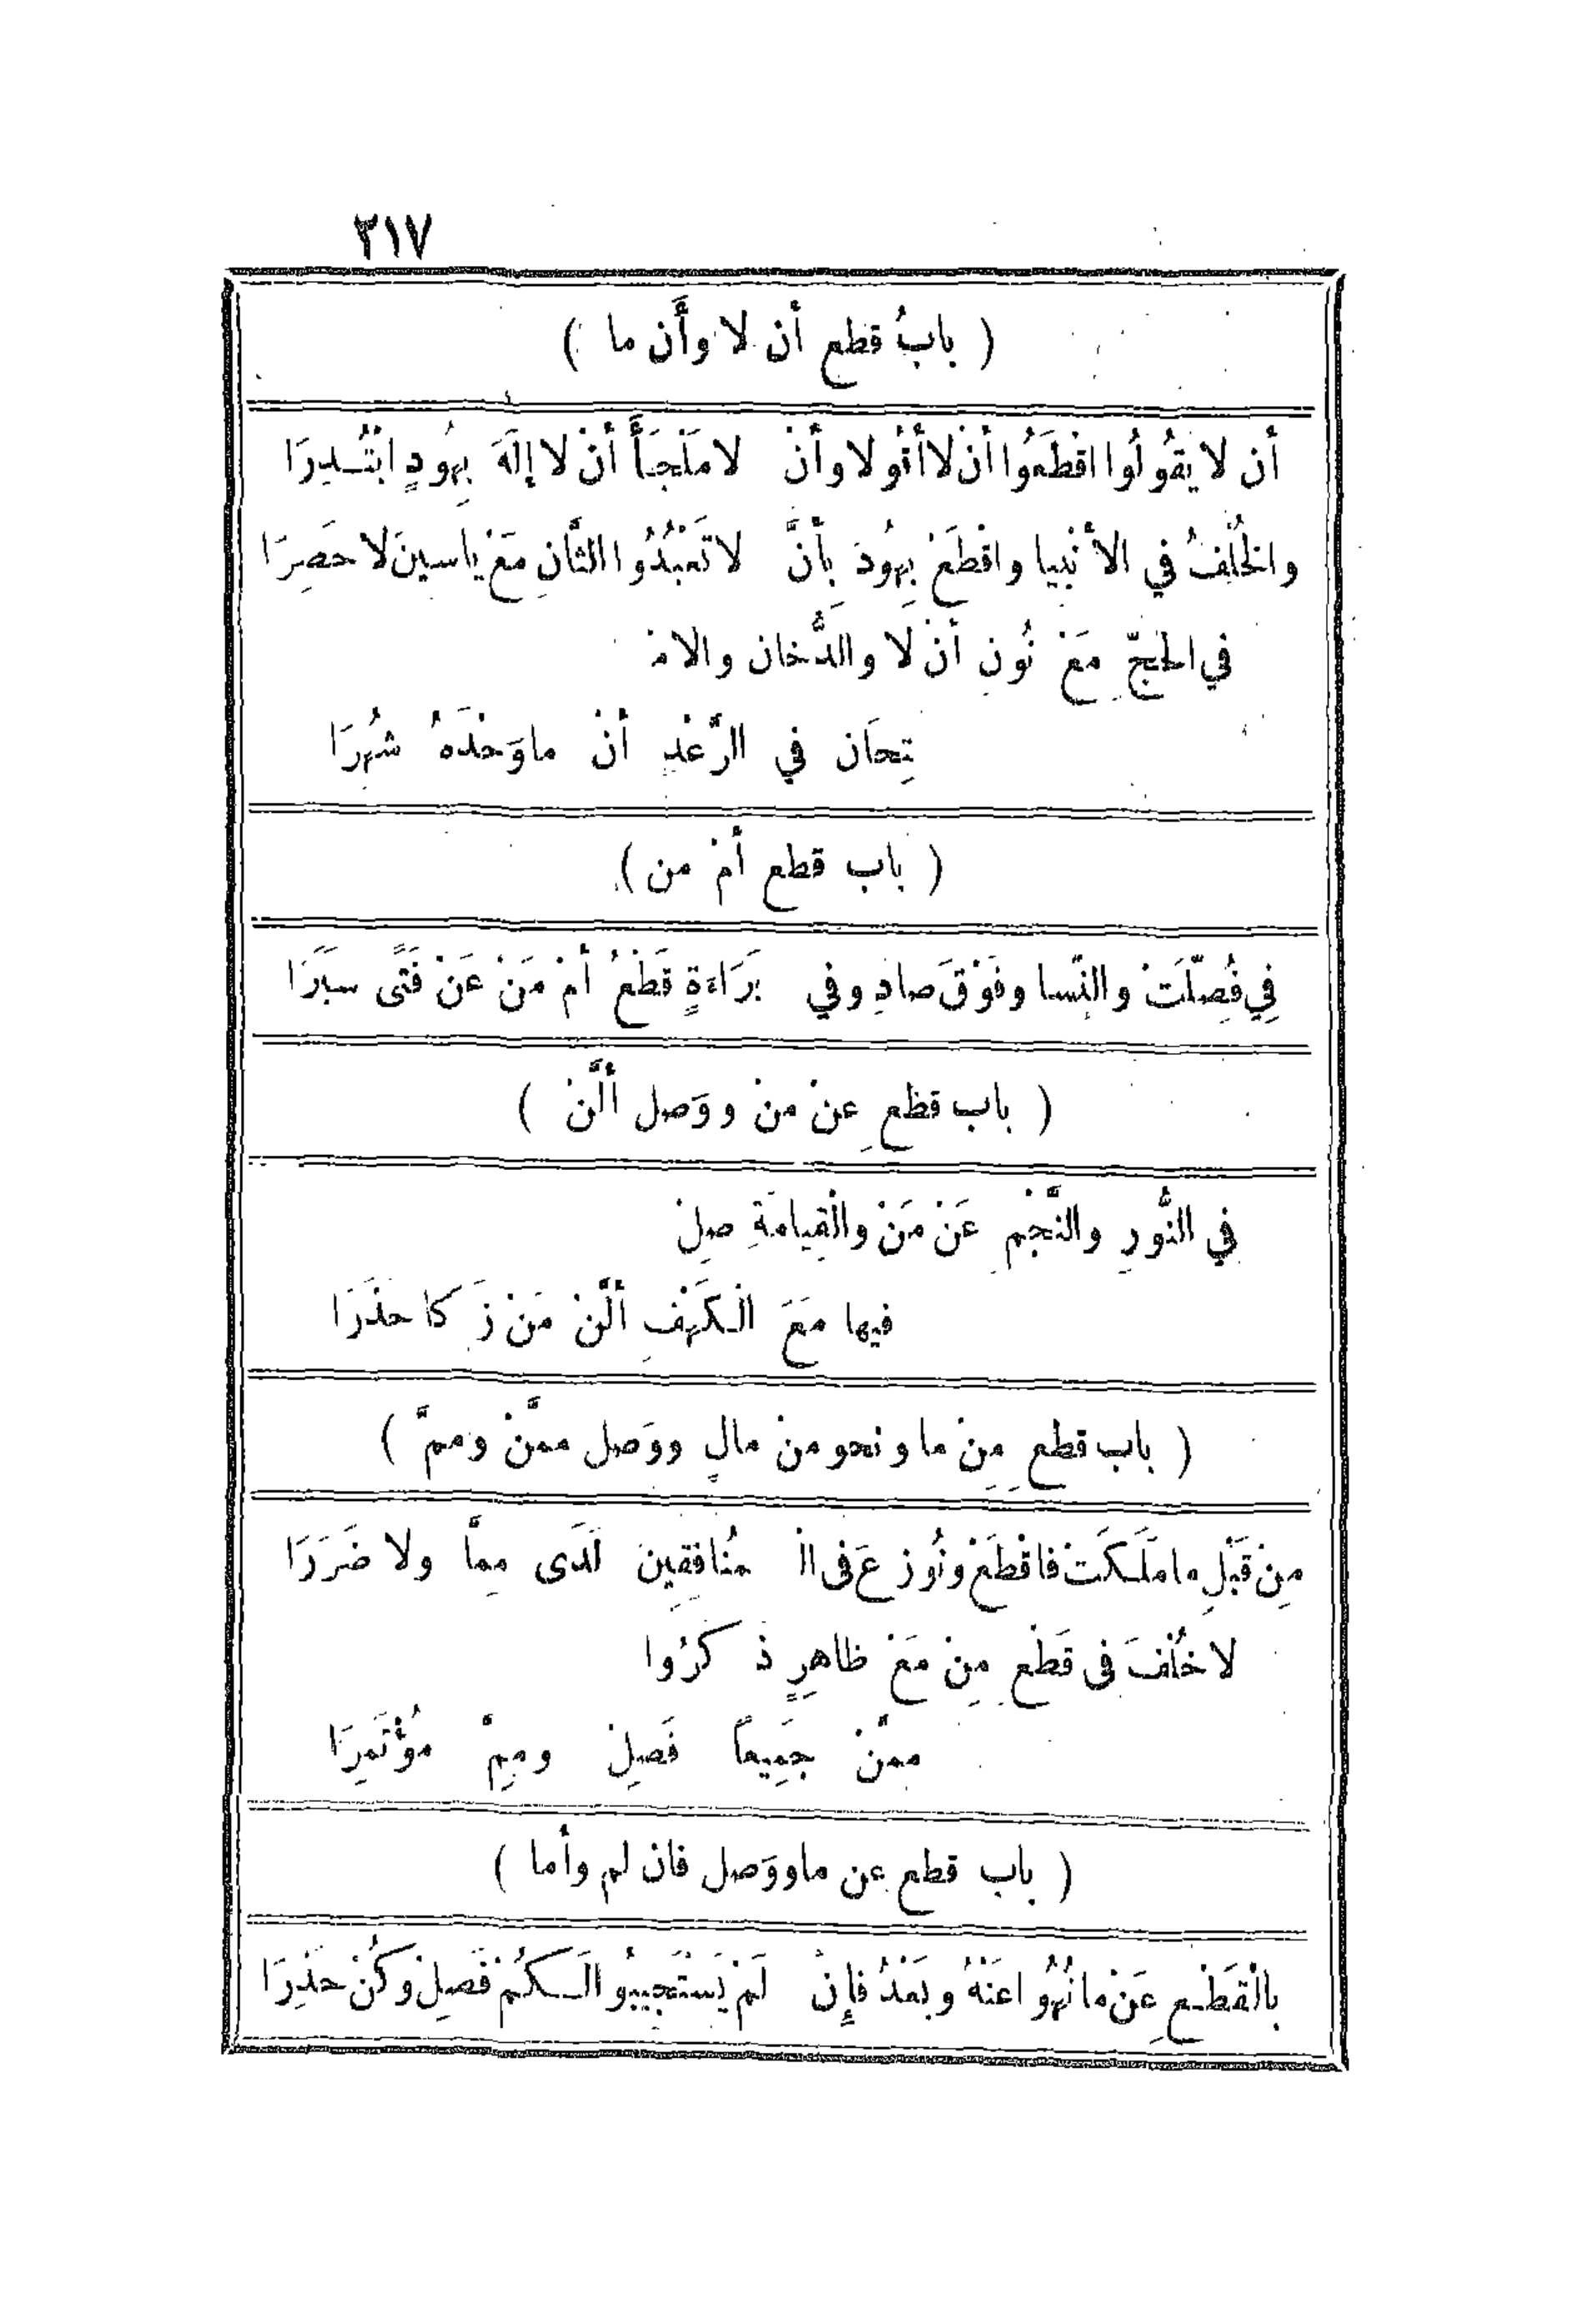 ٣١٧
( بابُ قطع أن لا وأَن ما )
أن لا يَقُولُوا اقْطَعُوا أنْ لا أقُولا وأنْ لا مَلْجَأَ أنْ لا إلَهَ بِهُودٍ ابْتُـدِرَا
والخُلْفُ في الأنْبِيا واقْطَعْ بِهُودَ بِأَنْ لا تَعْبُدُوا الثَّانِ مَعْ ياسينَ لا حَصِرَا
في الحَجِّ مَعْ نُونِ أنْ لا والدُّخان والامْ
تِحَان في الرَّعْدِ أنْ ما وَحْدَهُ شُهِرَا
( باب قطع أمْ من )
فِي فُصِّلَتْ والنِّسا وفَوْقَ صادِ وفي بَرَاءَةٍ قَطْعُ أمْ مَنْ عَنْ فَتًى سَبَرَا
( باب قطعِ عنْ منْ ووَصل ألَّنْ )
في النُّورِ والنَّجْمِ عَنْ مَنْ والْقِيامَةِ صِلْ
فيها مَعَ الْكَهْفِ ألَّنْ مَنْ زَكا حَذَرَا
( باب قطعِ مِنْ ما ونحو منْ مالٍ ووَصل ممَّنْ وممَّ )
مِنْ قَبْلِ ما مَلَـكَتْ فاقْطَعْ ونُوزِعَ فى الْ مُنافِقِينَ لَدَى مِمَّا ولا ضَرَرَا
لا خُلْفَ فى قَطْعِ مِنْ مَعْ ظاهِرٍ ذَكَرُوا
ممَّنْ جَمِيعاً فَصِلْ ومِمَّ مُؤْتَمِرَا
( باب قطع عن ما ووَصل فان لم وأما )
بالْقَطْـعِ عَنْ ما نُهُوا عَنْهُ وبَعْدُ فإنْ لَمْ يَسْتَجِيبُوا لَـكُمْ فَصِلْ وكُنْ حَذِرَا